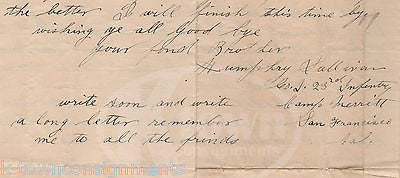 the better I will finish this time by
wishing ye all good bye
your fond Brother
Humphry Sullivan
Co. I. 23rd Infentry
write soon and write Camp Merritt
a long letter remember San Francisco
me to all the frinds Cal.